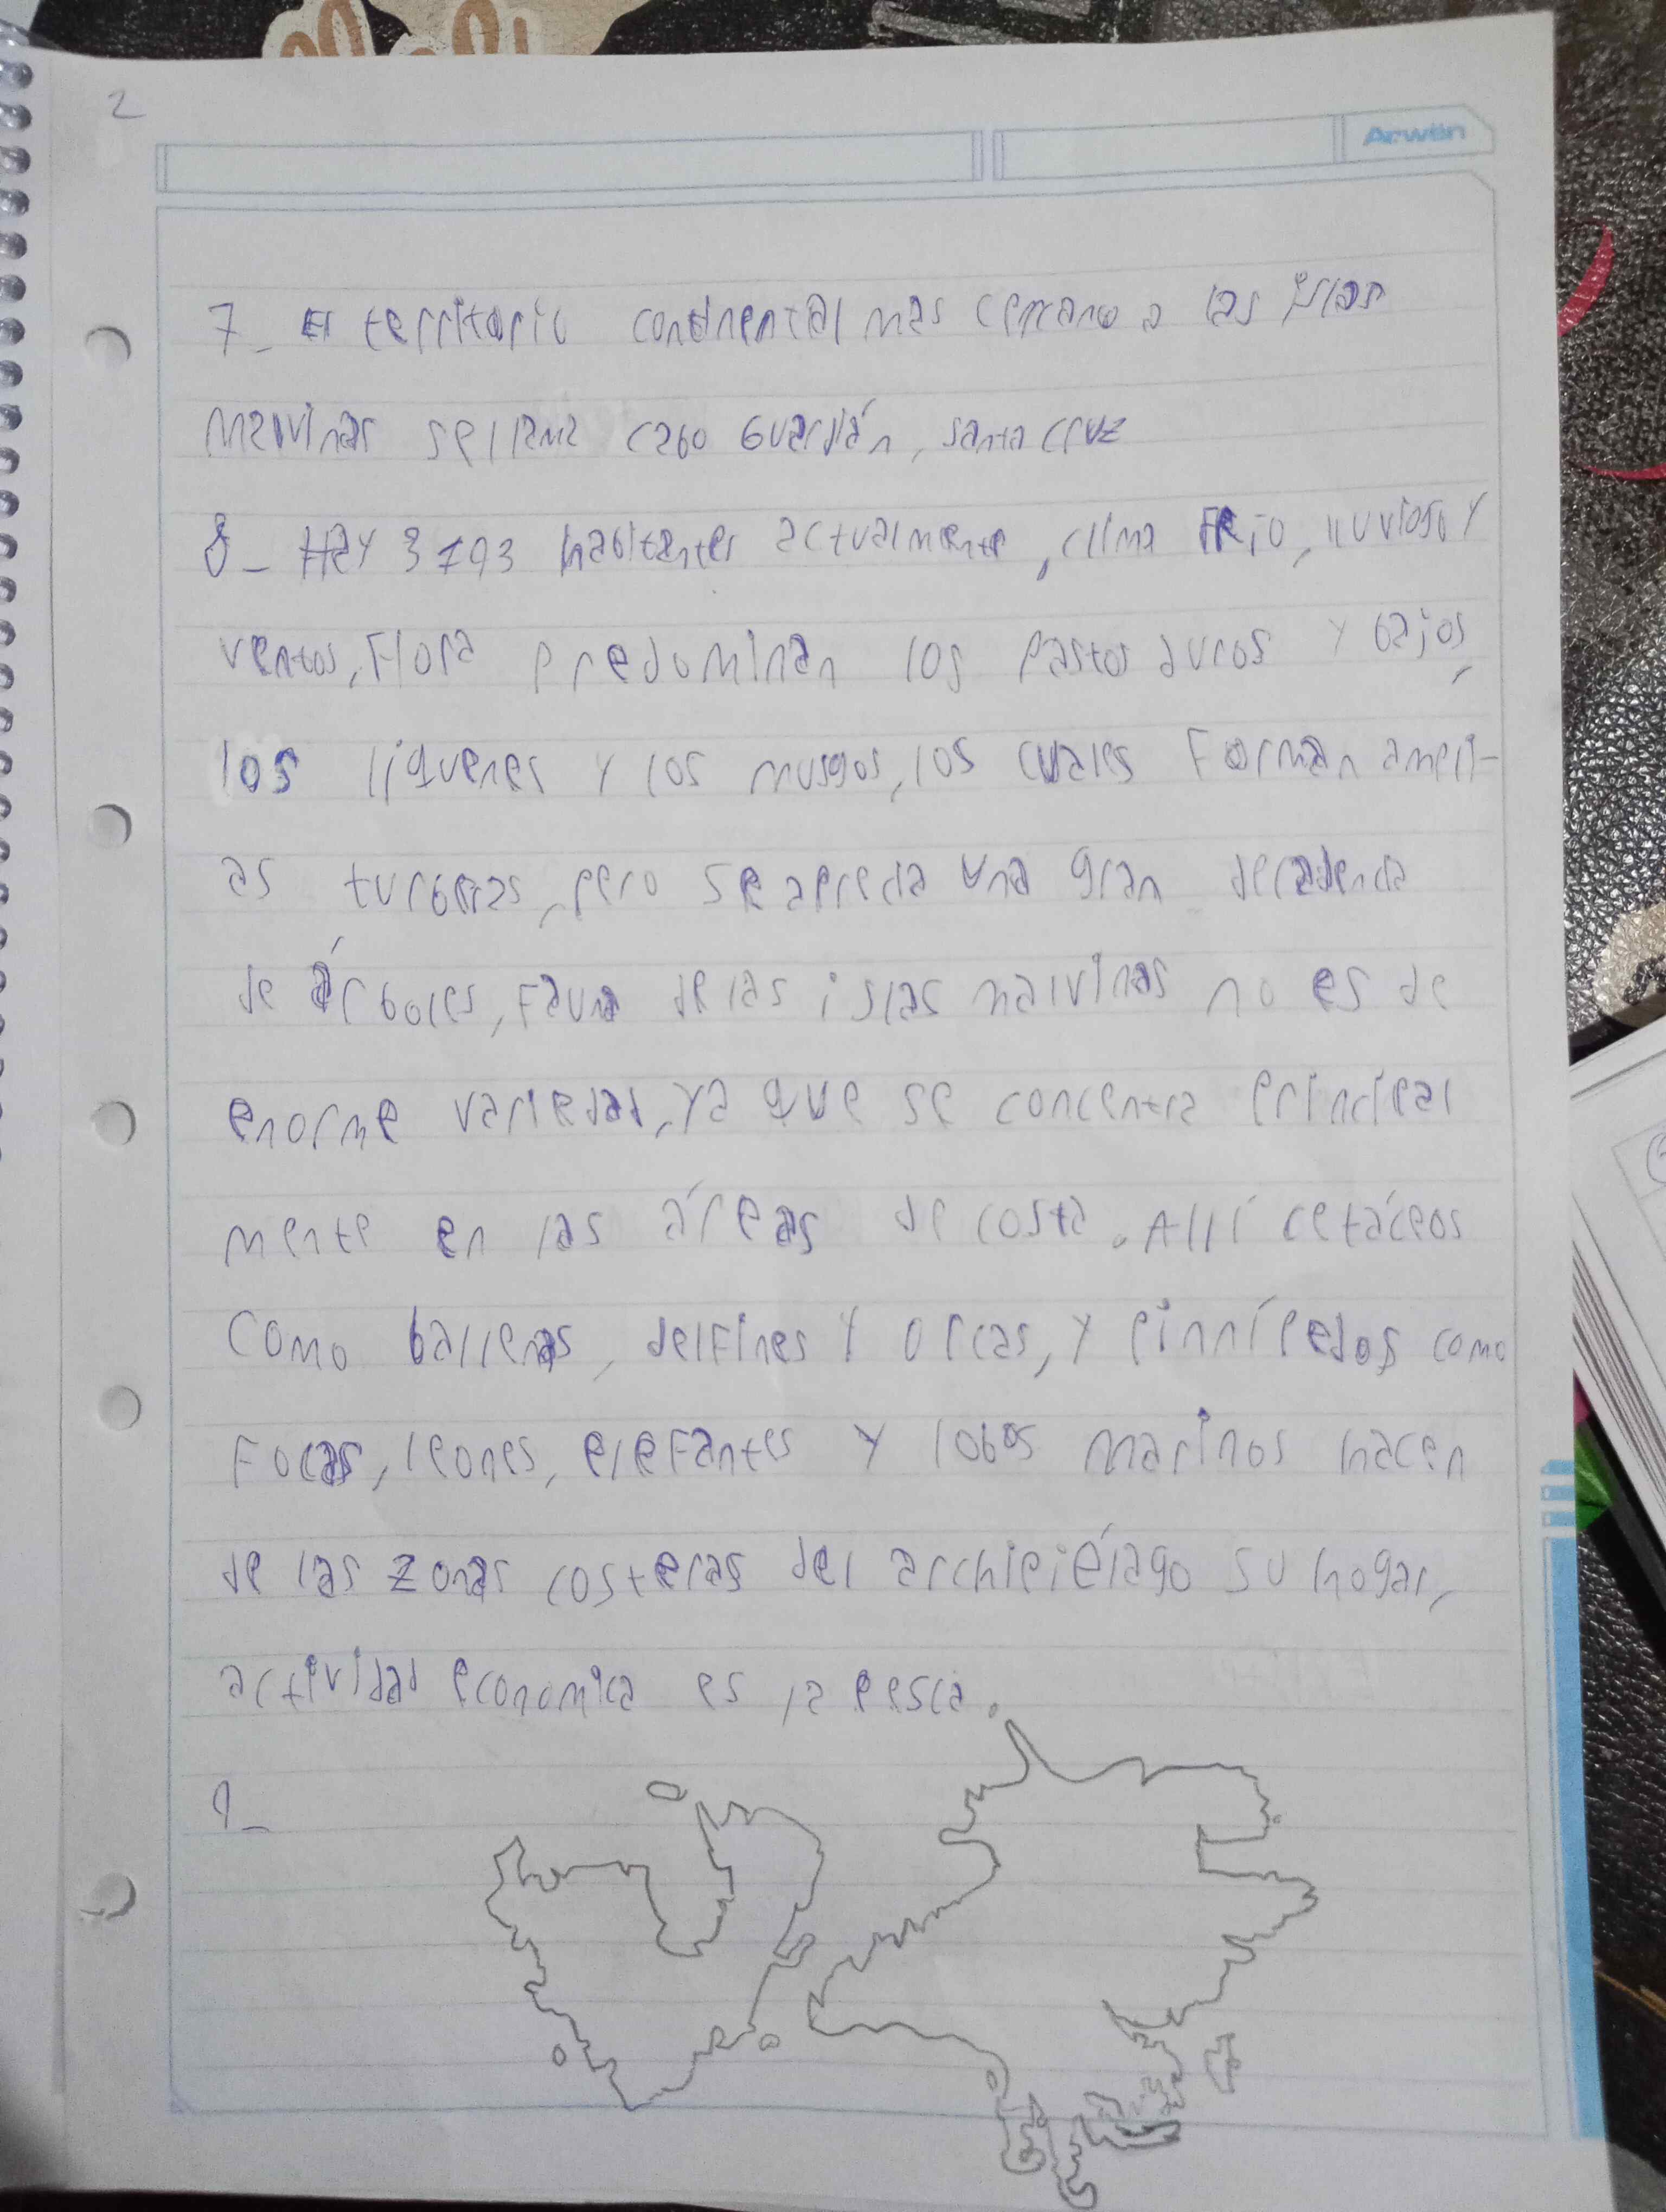 2
Arwën
7_ El territorio continental mas cercano a las islas
malvinas se llama cabo Guardián, santa cruz
8_ Hay 3793 habitantes actualmente, clima Frio, lluvioso y
ventos, Flora predominan los pastos duros y bajos,
los líquenes y los musgos, los cuales Forman ampli-
as turberas, pero se aprecia una gran decadencia
de árboles, Fauna de las islas malvinas no es de
enorme variedad, ya que se concentra principal
mente en las áreas de costa. Allí cetáceos
como ballenas, delFines y orcas, y pinnípedos como
Focas, leones, eleFantes y lobos marinos hacen
de las zonas costeras del archipiélago su hogar,
actividad economica es la pesca.
9_